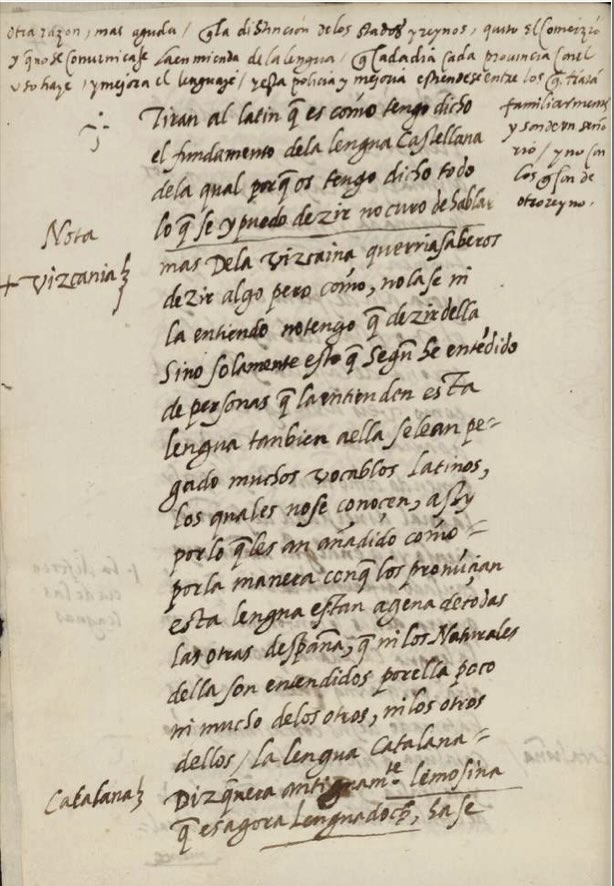 otra razon, mas aguda, / q̃ la distinción de los stados y reynos, quito el comerzio
y q̃ no se comunicase la enmienda de la lengua / q̃ cada dia cada provincia con el
uso haze, / y mejora el lenguaje / y esta policia y mejoria estiendese entre los q̃ tratã
familiarmente
y son de vn seño
rio / y no con
los q̃ son de
otro reyno.
Tiran al latin q̃ es cómo tengo dicho
el fundamento dela lengua Castellana
dela qual porq̃ os tengo dicho todo
lo q̃ se y puedo dezir no curo de hablar
Nota
+ Vizcania
mas Dela Vizcaina querria saberos
dezir algo pero cómo, nola se ni
la entiendo notengo q̃ dezir della
Sino solamente esto q̃ Segũ he entẽdido
de personas q̃ la entienden esta
lengua tanbien aella selean pe=
gado muchos vocablos Latinos,
los quales nose conoçen, assy
porlo q̃ les an añadido cómo =
porla manera conq̃ los pronũçian
esta lengua es tan agena de todas
las otras despaña, q̃ ni los Naturales
della son entendidos porella poco
ni mucho delos otros, ni los otros
dellos / la lengua Catalana =
Catalana
Diz q̃ nera antiguam.te lemosina
q̃ es agora Lenguadoc, hase